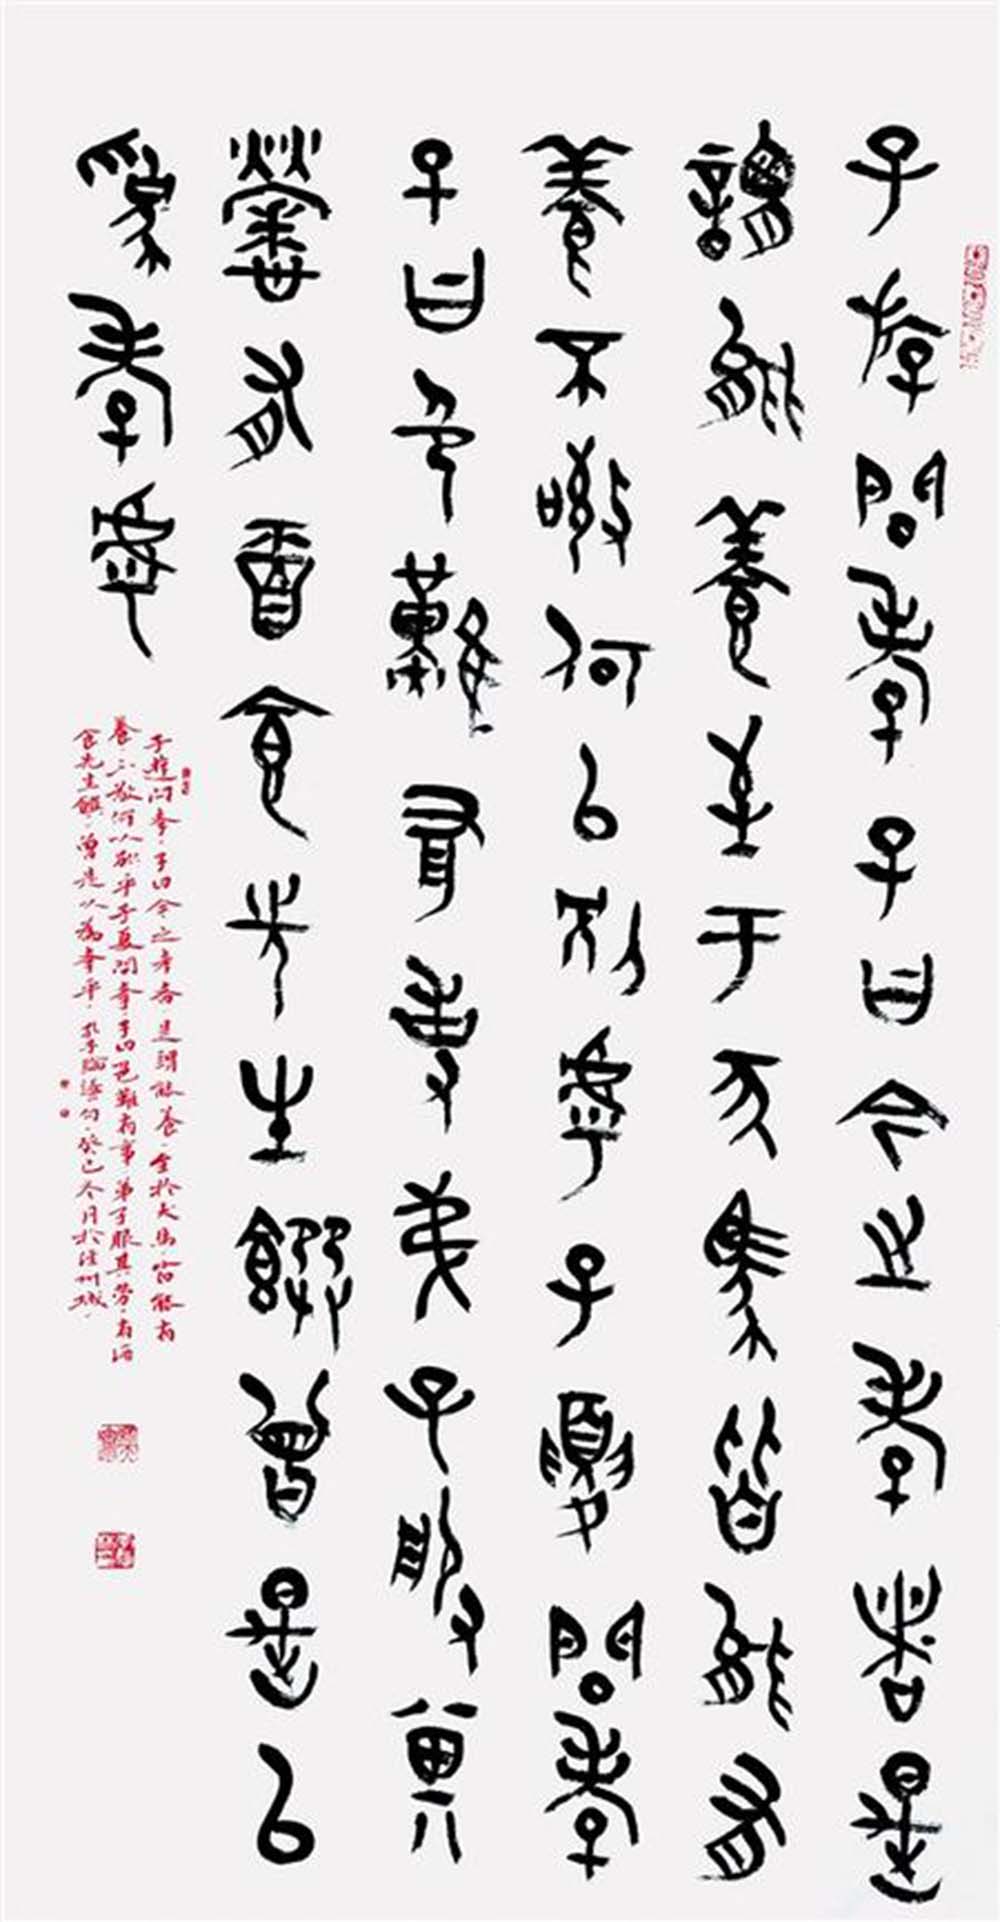 子游問孝子曰今之孝者是
謂能養至于犬馬皆能有
養不敬何以別乎子夏問孝
子曰色難有事弟子服其
勞有酒食先生饌曾是以
為孝乎
子游問孝子曰今之孝者是謂能養至於犬馬皆能有
養不敬何以別乎子夏問孝子曰色難有事弟子服其勞有酒
食先生饌曾是以為孝乎孔子論語句癸巳冬月於州城